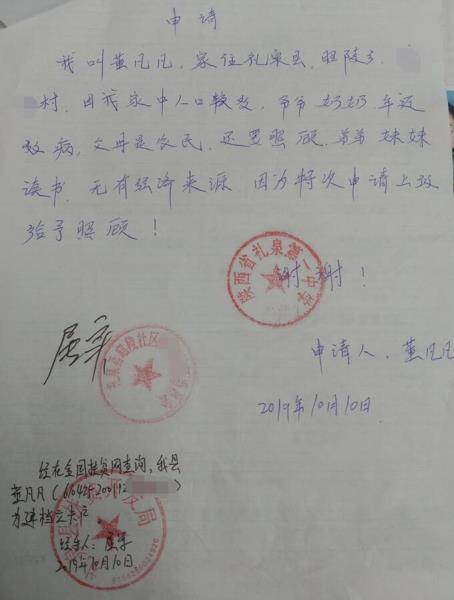 申请
我叫董凡凡，家住礼泉县，昭陵乡，
村，因我家中人口较多，爷爷奶奶年迈
多病，父母是农民，还要照顾，弟弟妹妹
读书，无有经济来源，因为特次申请上级
给予照顾！
谢谢！
陕西省礼泉第一中学
申请人，董凡凡
2019年10月10日
属实
礼泉县昭陵社区
经在全国扶贫网查询，我县
董凡凡（610425200112
为建档立卡户
经办人：
2019年10月10日